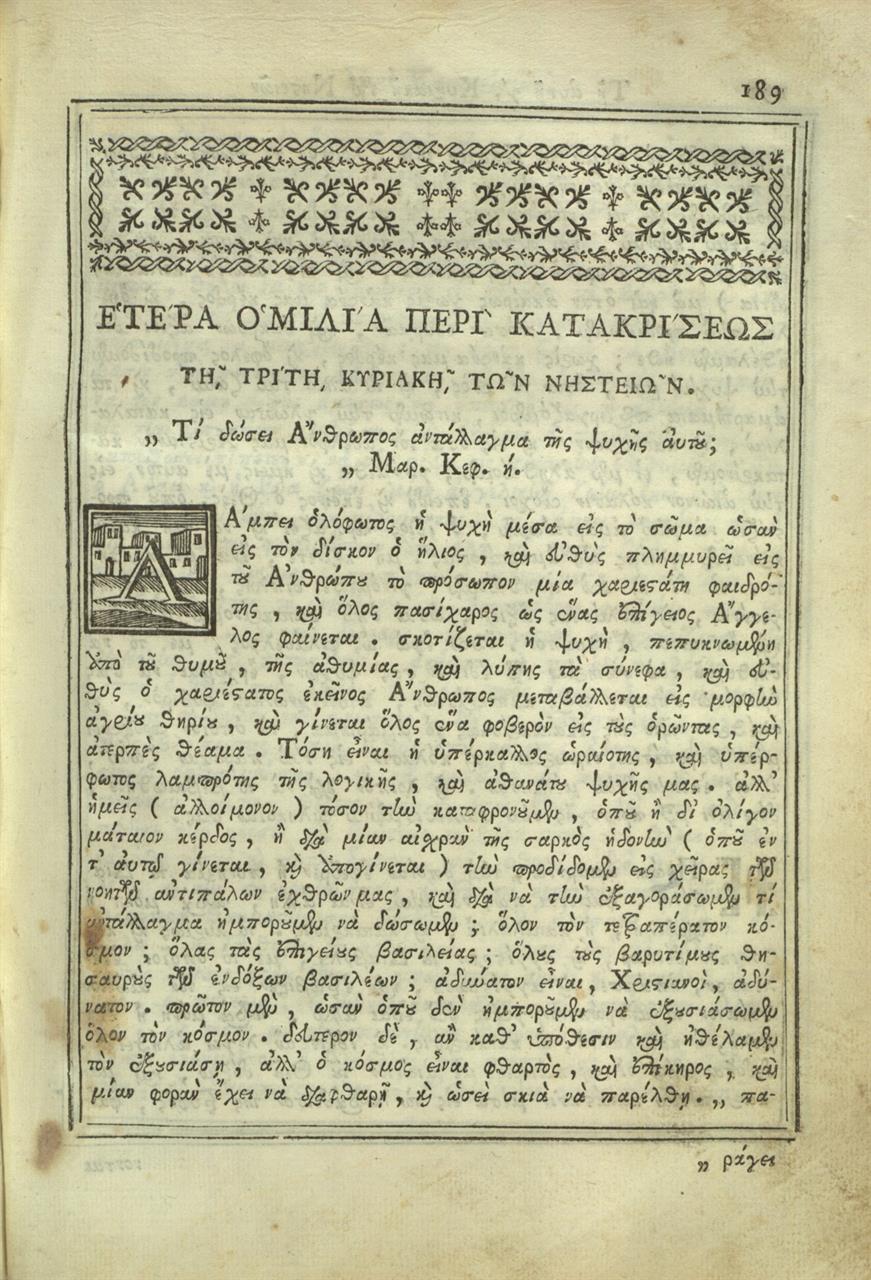 189
ἙΤΈΡΑ ὉΜΙΛΊΑ ΠΕΡῚ ΚΑΤΑΚΡΊΣΕΩΣ
Τῌ͂ ΤΡΊΤῌ ΚΥΡΙΑΚῌ͂ ΤΩ͂Ν ΝΗΣΤΕΙΩ͂Ν.
„ Τί δώσει Ἄνθρωπος ἀντάλλαγμα τῆς ψυχῆς αὑτοῦ;
„ Μαρ. Κεφ. ή.
ΛΆμπει ὁλόφωτος ἡ ψυχὴ μέσα εἰς τὸ σῶμα ὡσαν
εἰς τὸν δίσκον ὁ ἥλιος, καὶ εὐθὺς πλημμυρεῖ εἰς
τοῦ Ἀνθρώπου τὸ πρόσωπον μία χαριεςάτη φαιδρό-
της, καὶ ὅλος πασίχαρος ὡς ἕνας ἐπίγειος Ἄγγε-
λος φαίνεται. σκοτίζεται ἡ ψυχὴ, πεπυκνωμένη
ὑπὸ τοῦ θυμοῦ, τῆς ἀθυμίας, καὶ λύπης τὰ σύνεφα, καὶ εὐ-
θὺς ὁ χαριέςατος ἐκεῖνος Ἄνθρωπος μεταβάλλεται εἰς μορφὴν
ἀγρίου θηρίου, καὶ γίνεται ὅλος ἕνα φοβερὸν εἰς τοὺς ὁρῶντας, καὶ
ἀτερπὲς θέαμα. Τόση εἶναι ἡ ὑπέρκαλλος ὡραίοτης, καὶ ὑπέρ-
φωτος λαμπρότης τῆς λογικῆς, καὶ ἀθανάτου ψυχῆς μας. ἀλλ'
ἡμεῖς ( ἀλλοίμονον ) τόσον τὴν καταφρονοῦμεν, ὁποῦ ἢ δι ὀλίγον
μάταιον κέρδος, ἢ διὰ μίαν αἰχραν τῆς σαρκὸς ἡδονὴν ( ὁποῦ ἐν
τ' αὐτῷ γίνεται, καὶ ἀπογίνεται ) τὴν προδίδομεν εἰς χεῖρας τῶν
νοητῶν αντιπάλων ἐχθρῶν μας, καὶ διὰ νὰ τὴν ἐξαγοράσωμεν τί
αντάλλαγμα ἠμποροῦμεν νὰ δώσωμεν; ὅλον τὸν τετραπέρατον κό-
σμον; ὅλας τὰς ἐπιγείους βασιλείας; ὅλους τοὺς βαρυτίμους θη-
σαυροὺς τῶν ἐνδόξων βασιλέων; ἀδύνατον εἶναι, Χριστιανοὶ, ἀδύ-
νατον. πρῶτον μὲν, ὡσὰν ὁποῦ δὲν ἠμποροῦμεν νὰ ἐξουσιάσωμεν
ὅλον τὸν κόσμον. δεύτερον δὲ, ἂν καθ' ὑπόθεσιν καὶ ἠθέλαμεν
τὸν ἐξουσιάσῃ, ἀλλ' ὁ κόσμος εἶναι φθαρτὸς, καὶ ἐπίκηρος, καὶ
μίαν φορὰν ἔχει νὰ διαφθαρῇ, καὶ ὡσεὶ σκιὰ νὰ παρέλθῃ. „ πα-
„ ράγει